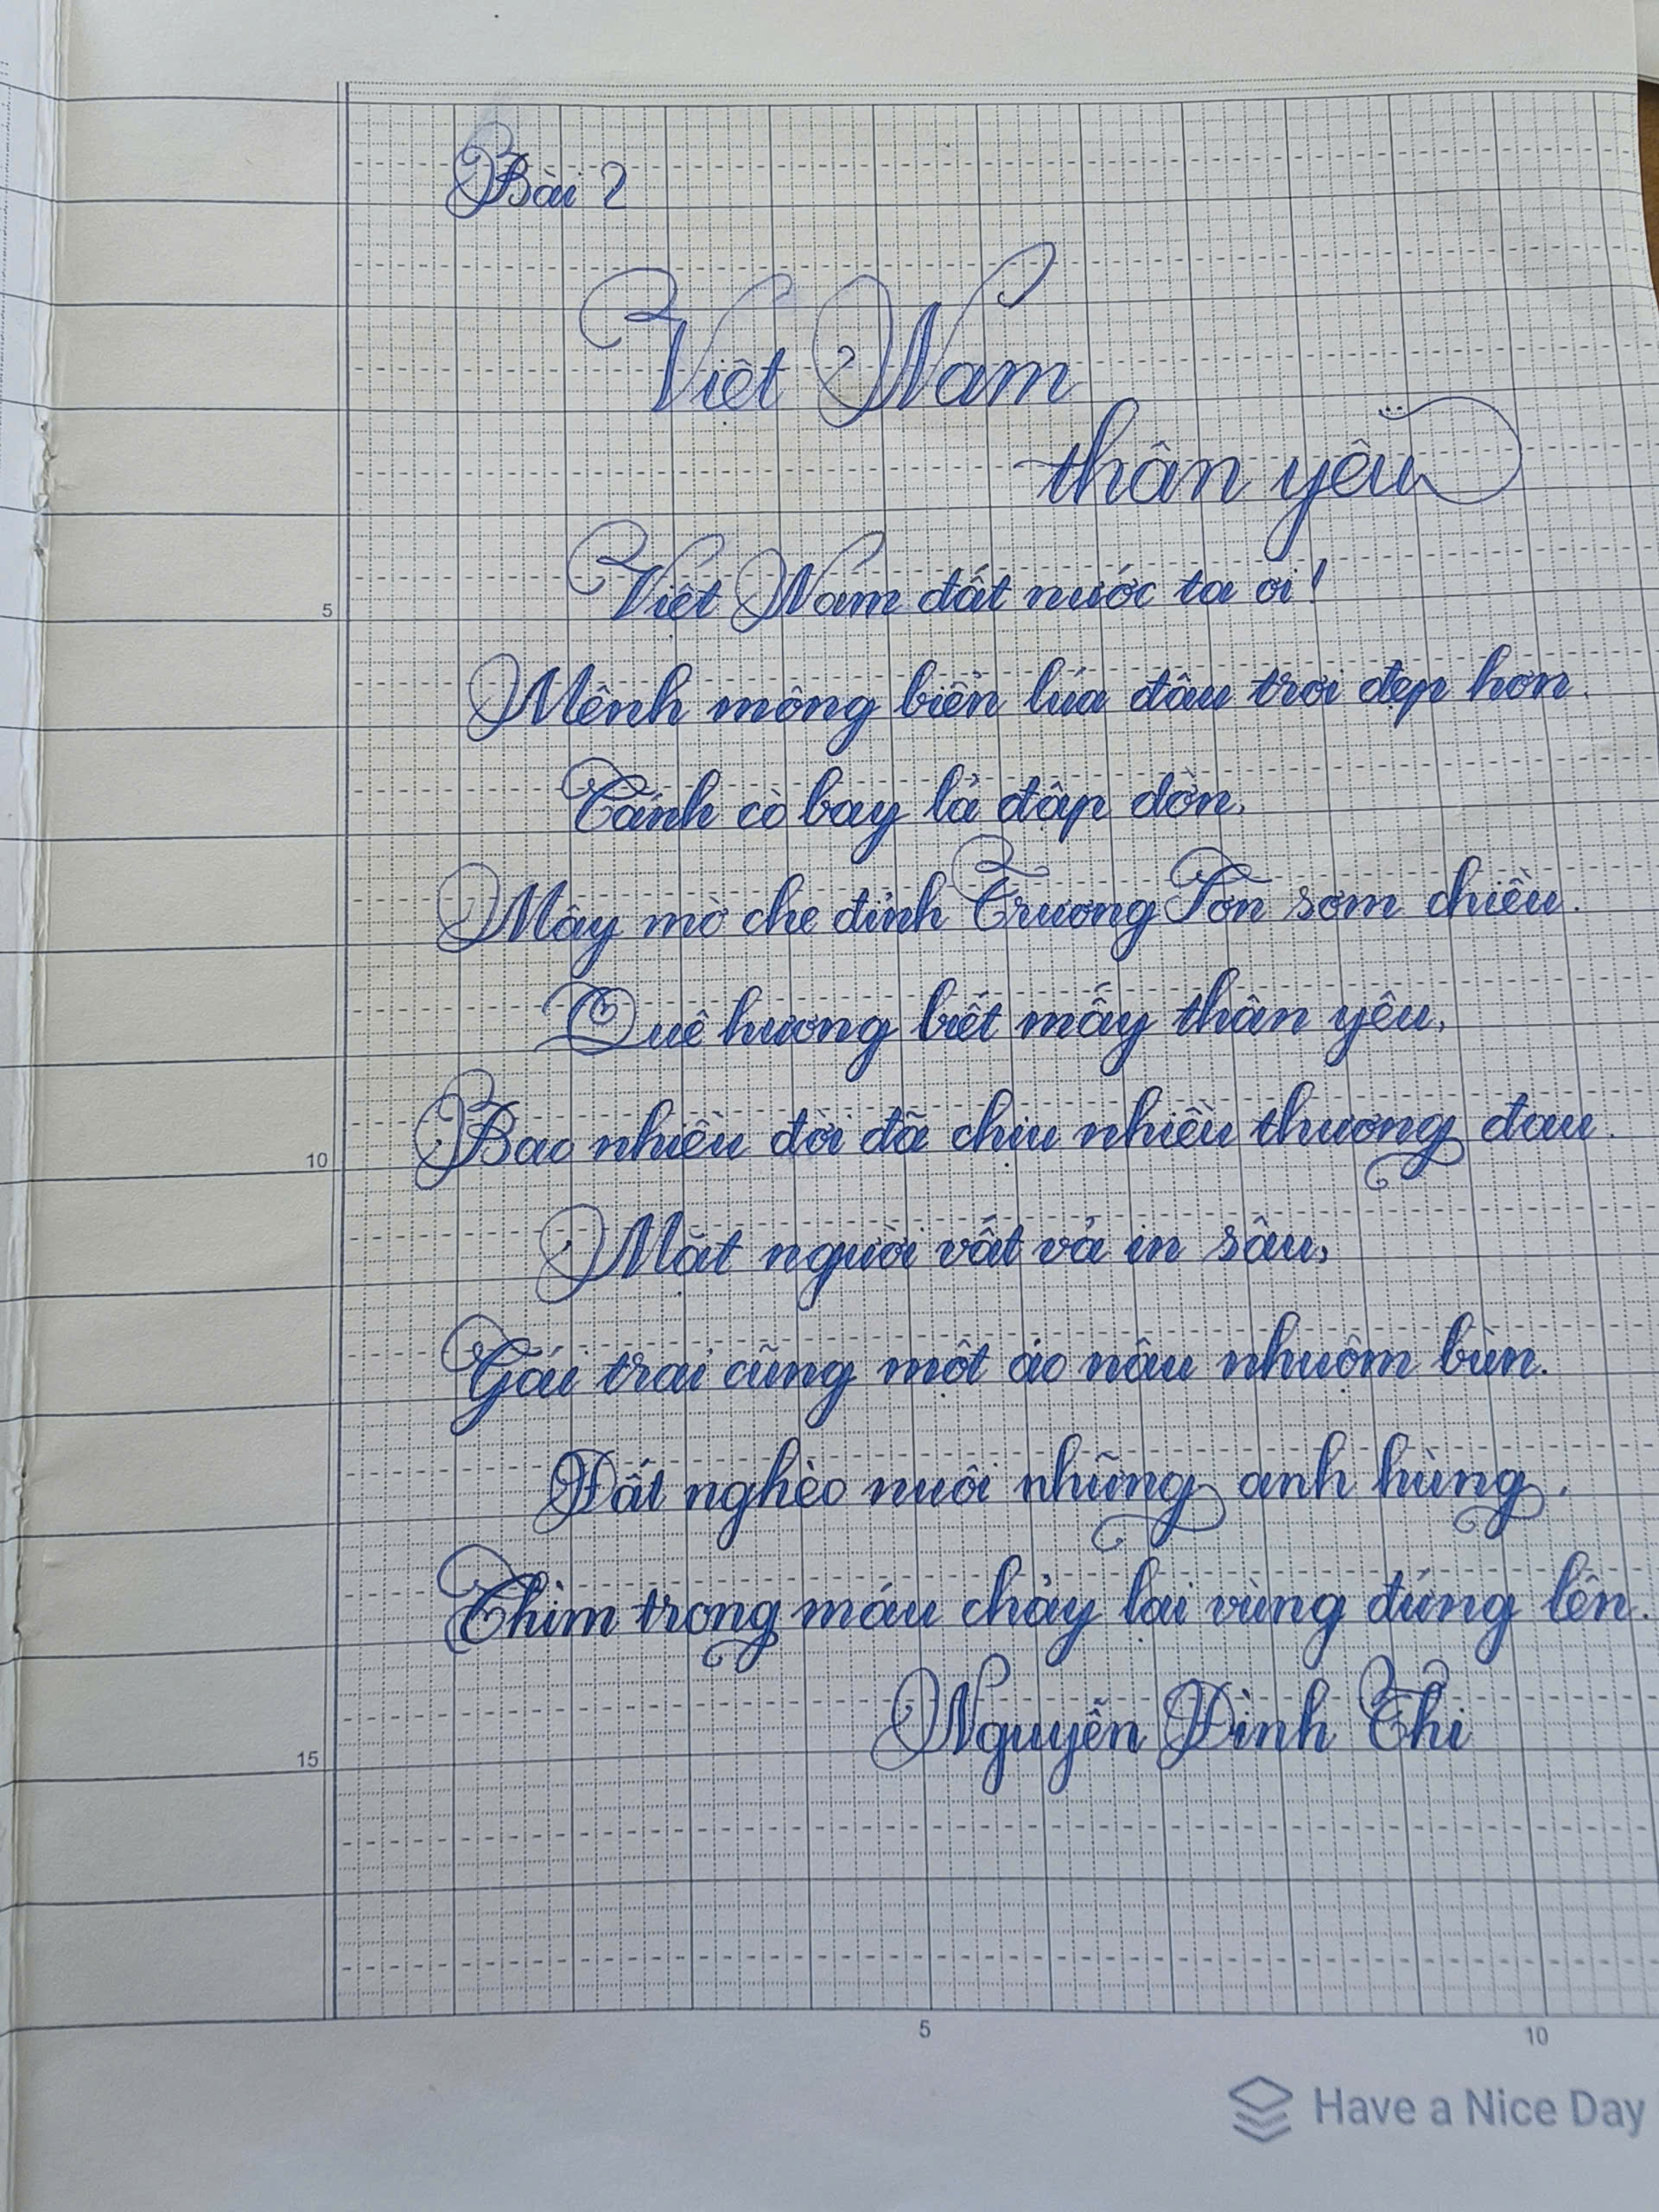 Bài 2
Việt Nam
thân yêu
Việt Nam đất nước ta ơi!
Mênh mông biển lúa đâu trời đẹp hơn.
Cánh cò bay lả dập dờn,
Mây mờ che đỉnh Trường Sơn sớm chiều.
Quê hương biết mấy thân yêu,
Bao nhiêu đời đã chịu nhiều thương đau.
Mặt người vất vả in sâu,
Gái trai cũng một áo nâu nhuộm bùn.
Đất nghèo nuôi những anh hùng.
Chìm trong máu chảy lại vùng đứng lên.
Nguyễn Đình Thi
5
10
15
5
10
Have a Nice Day